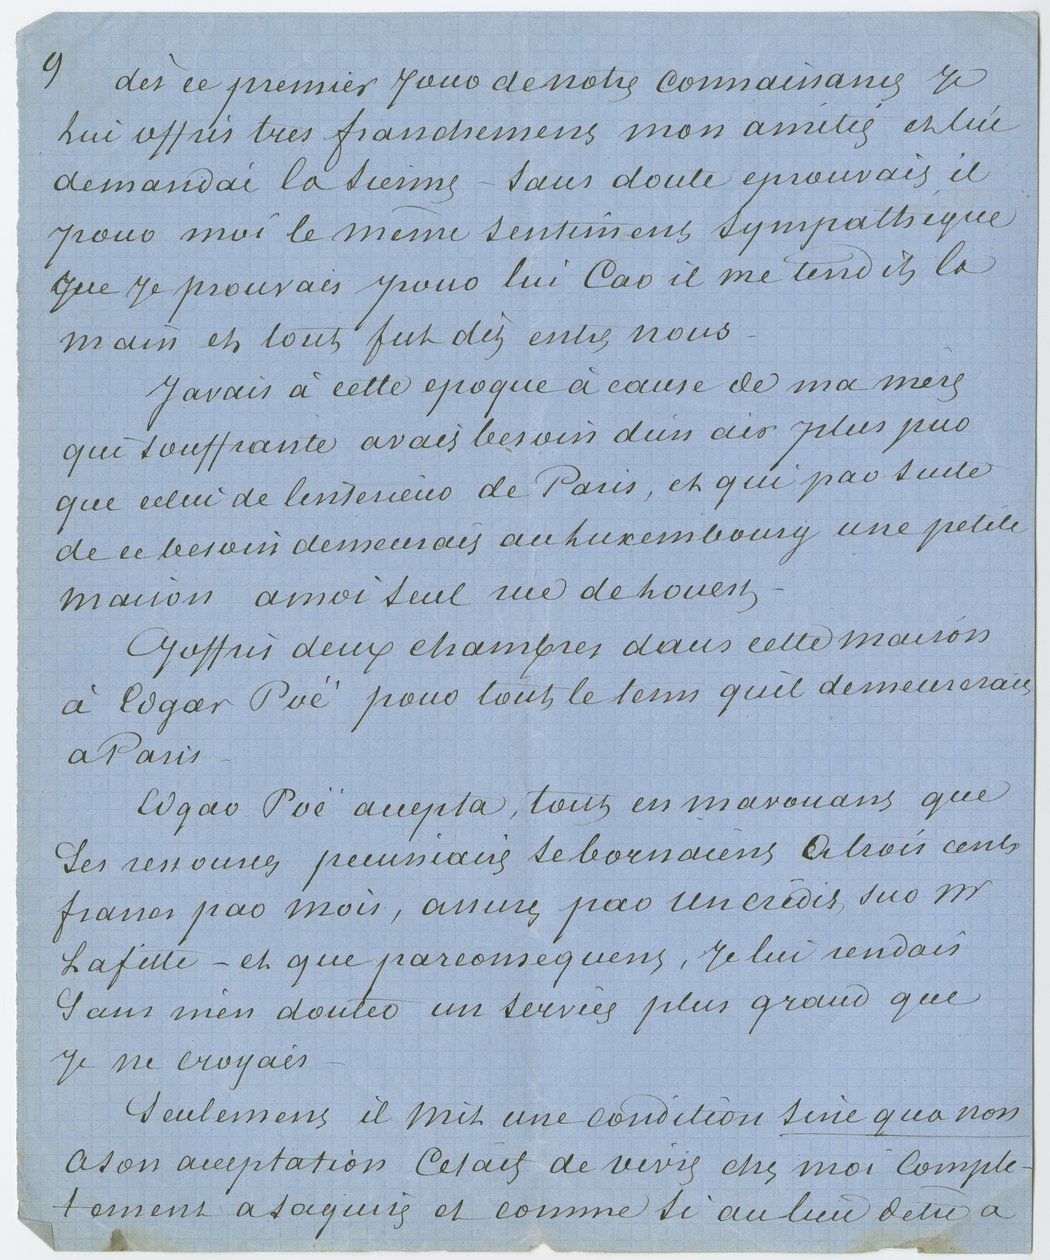 9
dès ce premier jour de notre connaissance je
lui offris tres franchement mon amitié et lui
demandai la sienne – sans doute eprouvait il
pour moi le même sentiment sympathique
que je prouvais pour lui Car il me tendit la
main et tout fut dit entre nous –
Javais à cette epoque à cause de ma mère
qui souffrante avait besoin dun air plus pur
que celui de linterieur de Paris, et qui par suite
de ce besoin demeurait au Luxembourg une petite
maison a moi seul rue de Louest –
Joffris deux chambres dans cette maison
à Edgar Poë pour tout le tems quil demeurerait
a Paris –
Edgar Poë accepta, tout en mavouant que
Ses ressources pecuniaire se bornaient a trois cents
francs par mois, assure par un crédit sur Mr
Lafitte – et que parconsequent, je lui rendais
Sans men douter un service plus grand que
je ne croyais –
Seulement il mit une condition sine qua non
a son acceptation Cetait de vivre chez moi Comple-
tement a sa guise et comme si au lieu detre a